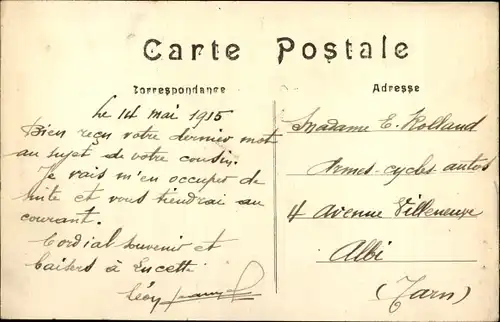 Carte Postale
Correspondance
Adresse
Le 14 mai 1915
Bien reçu votre dernier mot
au sujet de votre cousin.
Je vais m'en occuper de
suite et vous tiendrai au
courant.
Cordial souvenir et
baisers à
Léon
Madame E. Rolland
Armes-cycles autos
4 Avenue Villeneuve
Albi
(Tarn)